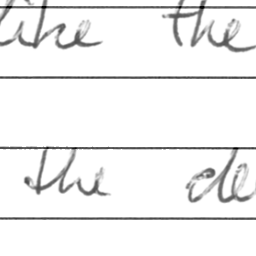 like the
the de